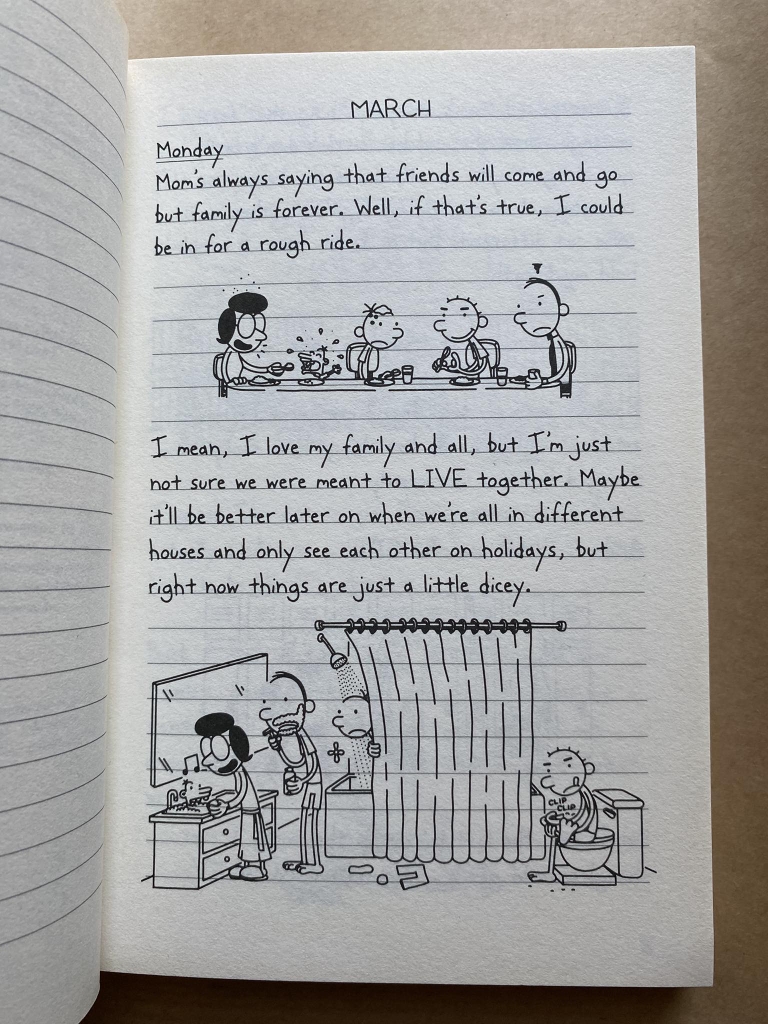 MARCH
Monday
Mom's always saying that friends will come and go
but family is forever. Well, if that's true, I could
be in for a rough ride.
I mean, I love my family and all, but I'm just
not sure we were meant to LIVE together. Maybe
it'll be better later on when we're all in different
houses and only see each other on holidays, but
right now things are just a little dicey.
CLIP
CLIP